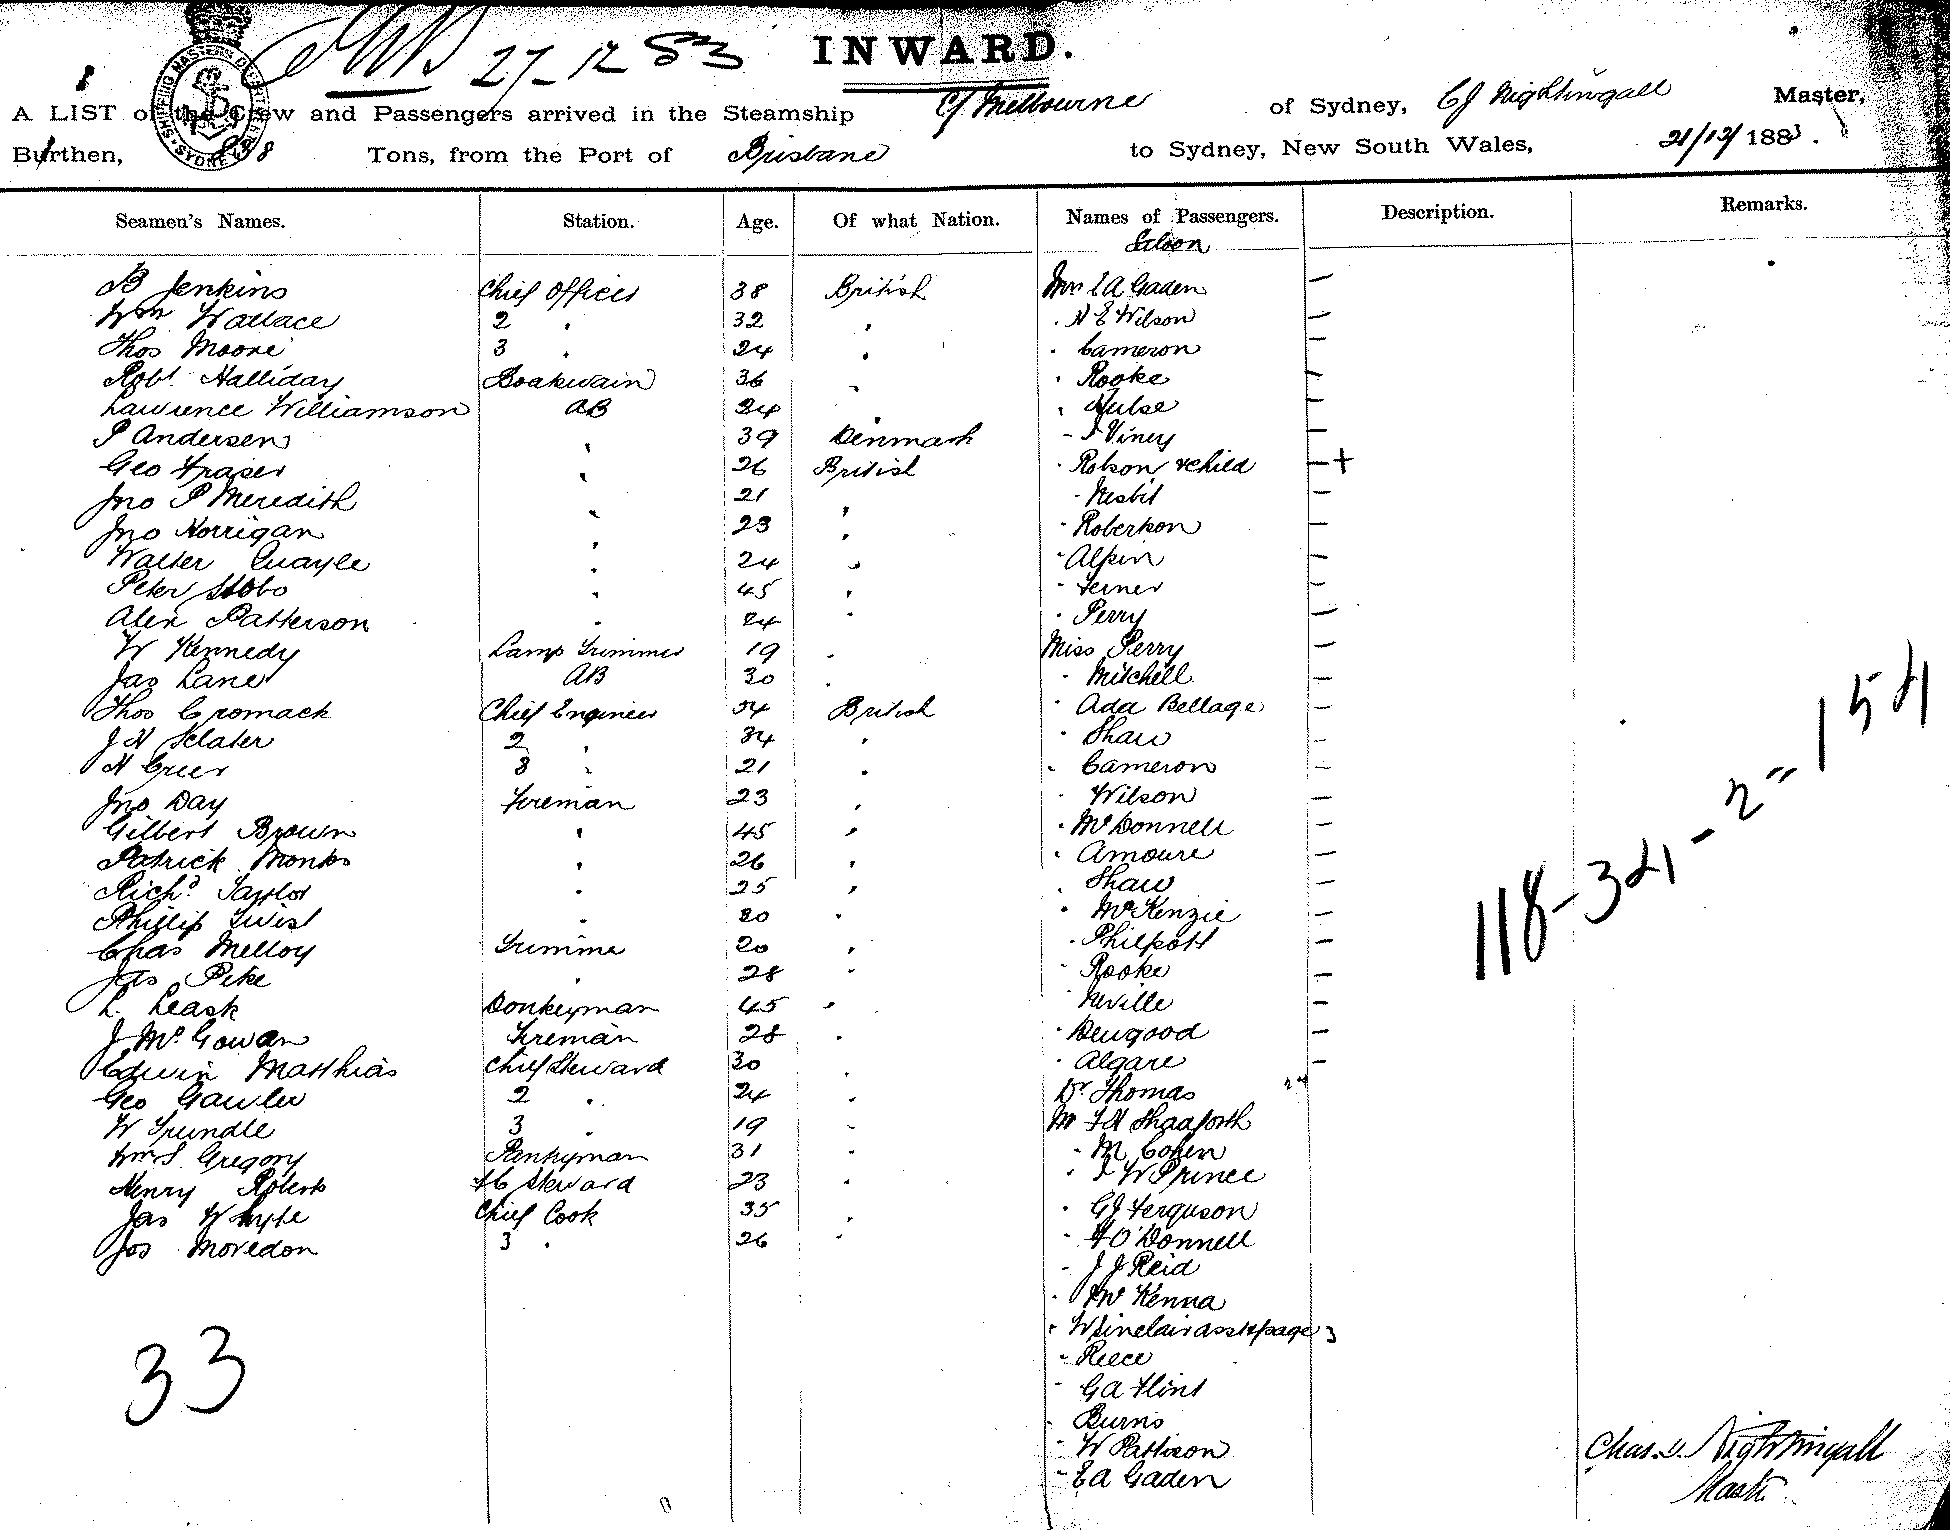 27-12 83
INWARD.
A LIST of the Crew and Passengers arrived in the Steamship C/ Melbourne of Sydney, CJ Nightingall Master,
Burthen, Tons, from the Port of Brisbane to Sydney, New South Wales, 21/12/ 1883.
SHIPPING MASTER'S SYDNEY
Seamen's Names. Station. Age. Of what Nation. Names of Passengers. Description. Remarks.
Saloon
B Jenkins Chief Officer 38 British Mrs E A Gaden —
Wm Wallace 2 " 32 " " N E Wilson —
Thos Moore 3 " 24 " " Cameron —
Robt Halliday Boatswain 36 " " Rooke —
Lawrence Williamson AB 24 " " Hulse —
P Andersen " 39 Denmark " Viney —
Geo Fraser " 26 British " Robson & child — +
Jno P Meredith " 21 " " Nesbit —
Jno Horrigan " 23 " " Robertson —
Walter Quayle " 24 " " Alpin —
Peter Stobo " 45 " " Ferner —
Alex Patterson " 24 " " Perry —
W Kennedy Lamp Trimmer 19 " Miss Perry —
Jas Lane AB 30 " " Mitchell —
Thos Cromack Chief Engineer 54 British " Ada Bellage —
J H Sclater 2 " 34 " " Shaw —
H Greer 3 " 21 " " Cameron —
Jno Day Fireman 23 " " Wilson —
Gilbert Brown " 45 " " McDonnell —
Patrick Monks " 26 " " Amoure —
Richd Taylor " 25 " " Shaw —
Phillip Twist " 20 " " McKenzie —
Chas Melloy Trimmer 20 " " Philpott —
Jas Pike " 28 " " Rooke —
L. Leask Donkeyman 45 " " Neville —
J McGowan Fireman 28 " " Dewgood —
Edwin Matthias Chief Steward 30 " " Algare —
Geo Gawler 2 " 24 " Dr Thomas
W Trundle 3 " 19 " Mr F H
Wm S Gregory Pantryman 31 " " M Cohen
Henry Roberts FC Steward 23 " " W Prince
Jas Whyte Chief Cook 35 " " GJ Ferguson
Jos Moredon 3 " 26 " " H O'Donnell
" J J Reid
" McKenna
" W Sinclair
" Reece
" GA Flint
" Burns
" W Pattison
" EA Gaden
33
118-34-2" 154
Chas. J. Nightingall
Master